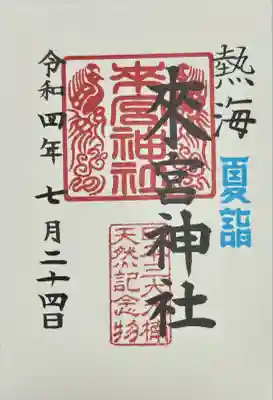 熱海
夏詣
來宮神社
令和四年 七月二十四日
來宮神社
天然記念物